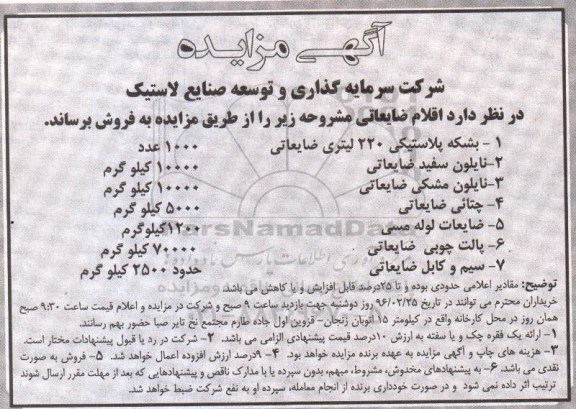 آگهی مزایده
شرکت سرمایه گذاری و توسعه صنایع لاستیک
در نظر دارد اقلام ضایعاتی مشروحه زیر را از طریق مزایده به فروش برساند.
۱ - بشکه پلاستیکی ۲۲۰ لیتری ضایعاتی ۱۰۰۰ عدد
۲-نایلون سفید ضایعاتی ۱۰۰۰۰ کیلو گرم
۳-نایلون مشکی ضایعاتی ۱۰۰۰۰ کیلو گرم
۴- چتائی ضایعاتی ۵۰۰۰ کیلو گرم
۵- ضایعات لوله مسی ۱۲۰۰کیلوگرم
۶- پالت چوبی ضایعاتی ۷۰۰۰۰ کیلو گرم
۷- سیم و کابل ضایعاتی حدود ۲۵۰۰ کیلو گرم
توضیح: مقادیر اعلامی حدودی بوده و تا ۲۵درصد قابل افزایش و یا کاهش می باشد.
خریداران محترم می توانند در تاریخ ۹۶/۰۲/۲۵ روز دوشنبه جهت بازدید ساعت ۹ صبح و شرکت در مزایده و اعلام قیمت ساعت ۹:۳۰ صبح
همان روز در محل کارخانه واقع در کیلومتر ۱۵ اتوبان زنجان - قزوین اول جاده طارم مجتمع نخ تایر صبا حضور بهم رسانند.
۱- ارائه یک فقره چک و یا سفته به ارزش ۱۰درصد قیمت پیشنهادی الزامی می باشد. ۲- شرکت در رد یا قبول پیشنهادات مختار است.
۳- هزینه های چاپ و آگهی مزایده به عهده برنده مزایده خواهد بود. ۴- ۹درصد ارزش افزوده اعمال خواهد شد. ۵- فروش به صورت
نقدی می باشد. ۶- به پیشنهادهای مخدوش، مشروط، مبهم، بدون سپرده یا با مدارک ناقص و پیشنهادهایی که بعد از مهلت مقرر ارسال شوند
ترتیب اثر داده نمی شود و در صورت خودداری برنده از انجام معامله، سپرده او به نفع شرکت ضبط خواهد شد.